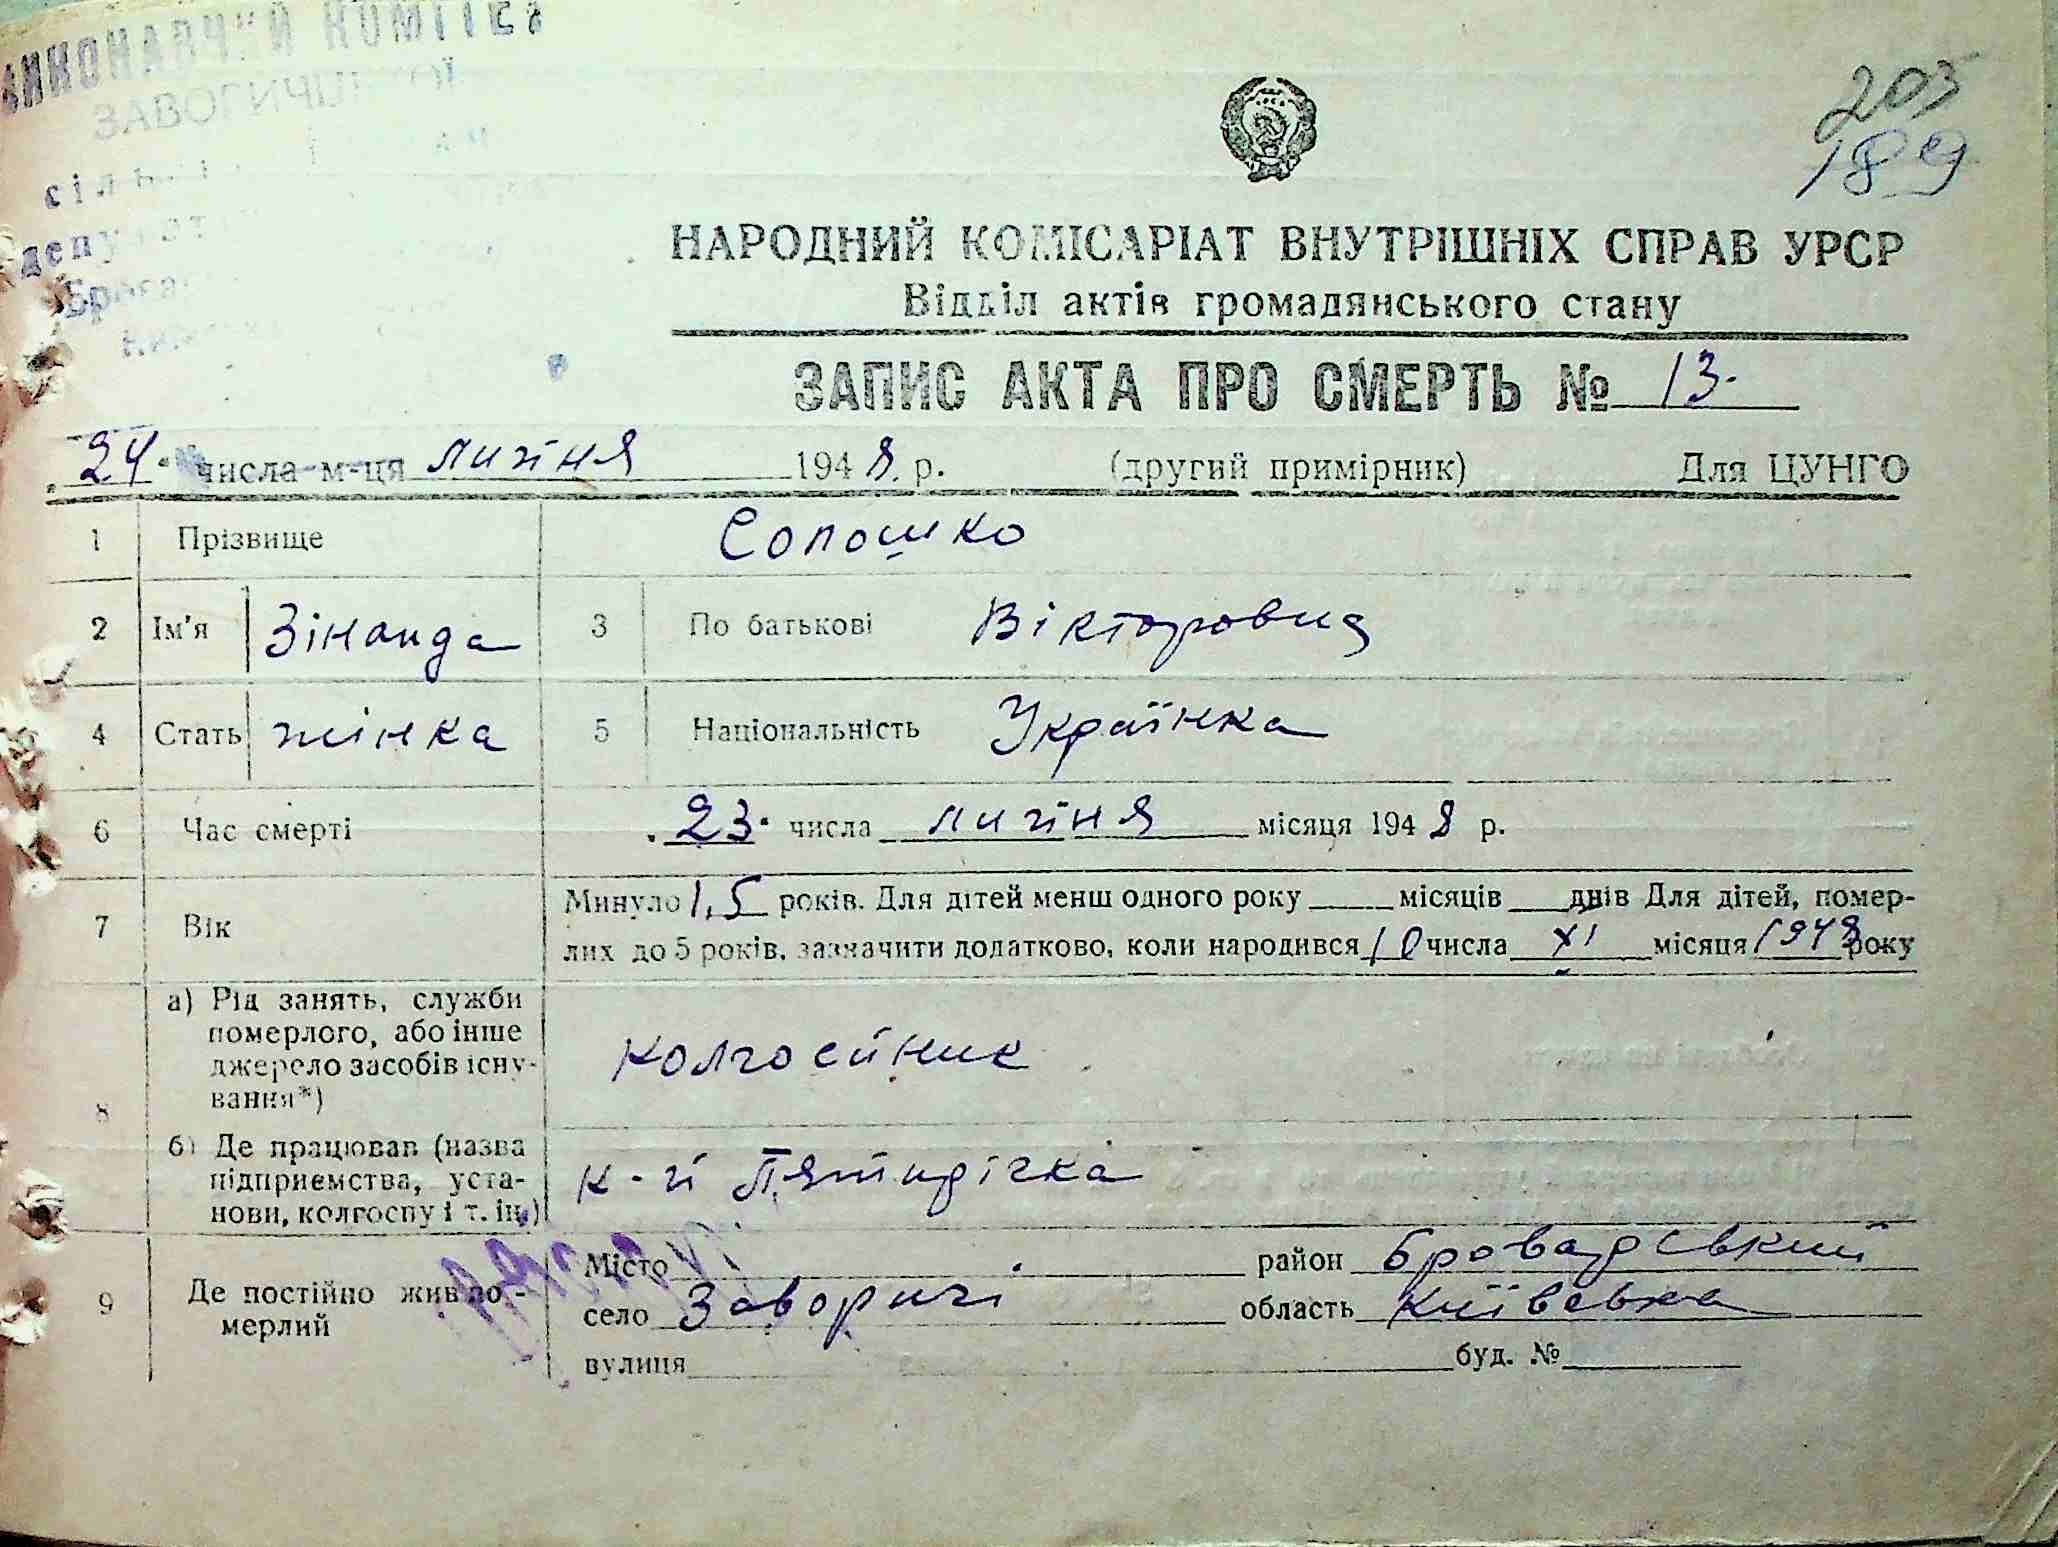 ВИКОНАВЧИЙ КОМІТЕТ
203
189
НАРОДНИЙ КОМІСАРІАТ ВНУТРІШНІХ СПРАВ УРСР
Відділ актів громадянського стану
ЗАПИС АКТА ПРО СМЕРТЬ № 13.
24 числа м-ця липня 1948 р. (другий примірник) Для ЦУНГО
1 Прізвище Солошко
2 Ім'я Зінаида 3 По батькові
4 Стать жінка 5 Національність Українка
6 Час смерті 23 числа липня місяця 1948 р.
7 Вік Минуло 1,5 років. Для дітей менш одного року місяців днів Для дітей, помер-
лих до 5 років, зазначити додатково, коли народився 10 числа XI місяця 1948 року
8 а) Рід занять, служби померлого, або інше джерело засобів існу-вання*) колгоспник
б) Де працював (назва підприємства, уста-нови, колгоспу і т. ін.) к-п Пятидічка
9 Де постійно жив по-мерлий Місто район Броварський
село Заворичі область Київська
вулиця буд. №